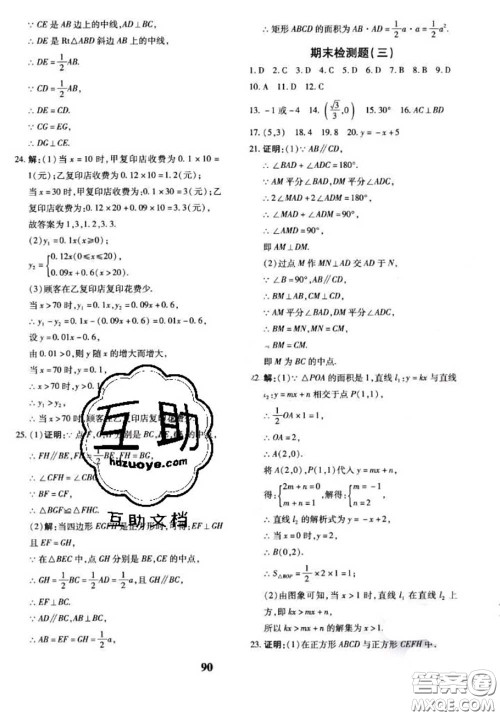 ∵ CE 是 AB 边上的中线, AD⊥BC,
∴ DE 是 Rt△ABD 斜边 AB 上的中线,
∴ DE=1/2AB.
∵ CD=1/2AB,
∴ DE=CD.
∵ CG=EG,
∴ DG⊥CE.
24. 解:(1)当 x=10 时,甲复印店收费为 0.1×10=
1(元);乙复印店收费为 0.12×10=1.2(元);
当 x=30 时,甲复印店收费为 0.1×30=3(元);乙
复印店收费为 0.12×20+0.09×10=3.3(元);
故答案为 1,3,1.2,3.3.
(2)y₁=0.1x(x≥0);
y₂={0.12x(0≤x≤20),
0.09x+0.6(x>20).
(3)顾客在乙复印店复印花费少.
当 x>70 时,y₁=0.1x,y₂=0.09x+0.6,
∴ y₁-y₂=0.1x-(0.09x+0.6)=0.01x-0.6.
设 y=0.01x-0.6,
由 0.01>0,则 y 随 x 的增大而增大,
当 x=70 时,y=0.1,
∴ x>70 时,y>0.1,
∴ y₁>y₂,
∴ 当 x>70 时,顾客在乙复印店复印花费少.
25. (1)证明:∵ 点 F,G,H 分别是 BC,BE,CE 的中点,
∴ FH∥BE,FH=1/2BE,
∴ ∠CFH=∠CBG.
∵ BF=CF,
∴ △BGF≌△FHC.
(2)解:当四边形 EGFH 是正方形时,可得:EF⊥GH
且 EF=GH.
∵ 在△BEC 中,点 GH 分别是 BE,CE 的中点,
∴ GH=1/2BC=1/2AD=1/2a,且 GH∥BC,
∴ EF⊥BC.
∵ AD∥BC,AB⊥BC,
∴ AB=EF=GH=1/2a,
∴ 矩形 ABCD 的面积为 AB·AD=1/2a·a=1/2a².
期末检测题(三)
1. D 2. C 3. D 4. D 5. D 6. C 7. B 8. D 9. D
10. A 11. D 12. C
13. -1 或 -4 14. (√3/3,0) 15. 30° 16. AC⊥BD
17. (5,3) 18. 4 19. 8 20. y=-x+5
21. 证明:(1)∵ AB∥CD,
∴ ∠BAD+∠ADC=180°.
∵ AM 平分∠BAD,DM 平分∠ADC,
∴ 2∠MAD+2∠ADM=180°,
∴ ∠MAD+∠ADM=90°,
∴ ∠AMD=90°,
即 AM⊥DM.
(2)过点 M 作 MN⊥AD 交 AD 于 N,
∵ ∠B=90°,AB∥CD,
∴ BM⊥AB,CM⊥CD.
∵ AM 平分∠BAD,DM 平分∠ADC,
∴ BM=MN,MN=CM,
∴ BM=CM.
即 M 为 BC 的中点.
22. 解:(1)∵ △POA 的面积是 1,直线 l₁:y=kx 与直线
l₂:y=mx+n 相交于点 P(1,1),
∴ 1/2OA×1=1.
∴ OA=2,
∴ A(2,0).
将 A(2,0),P(1,1)代入 y=mx+n,
得:{2m+n=0
m+n=1,
解得:{m=-1,
n=2.
∴ 直线 l₂ 的解析式为 y=-x+2,
∴ 当 x=0 时,y=2,
∴ B(0,2).
∴ S△BOP=1/2×2×1=1.
(2)由图象可知,当 x>1 时,直线 l₁ 在直线 l₂ 上方,
即 kx>mx+n,
所以 kx>mx+n 的解集为 x>1.
23. 证明:(1)在正方形 ABCD 与正方形 CEFH 中,
90
互助
hdzuoye.com
互助文档